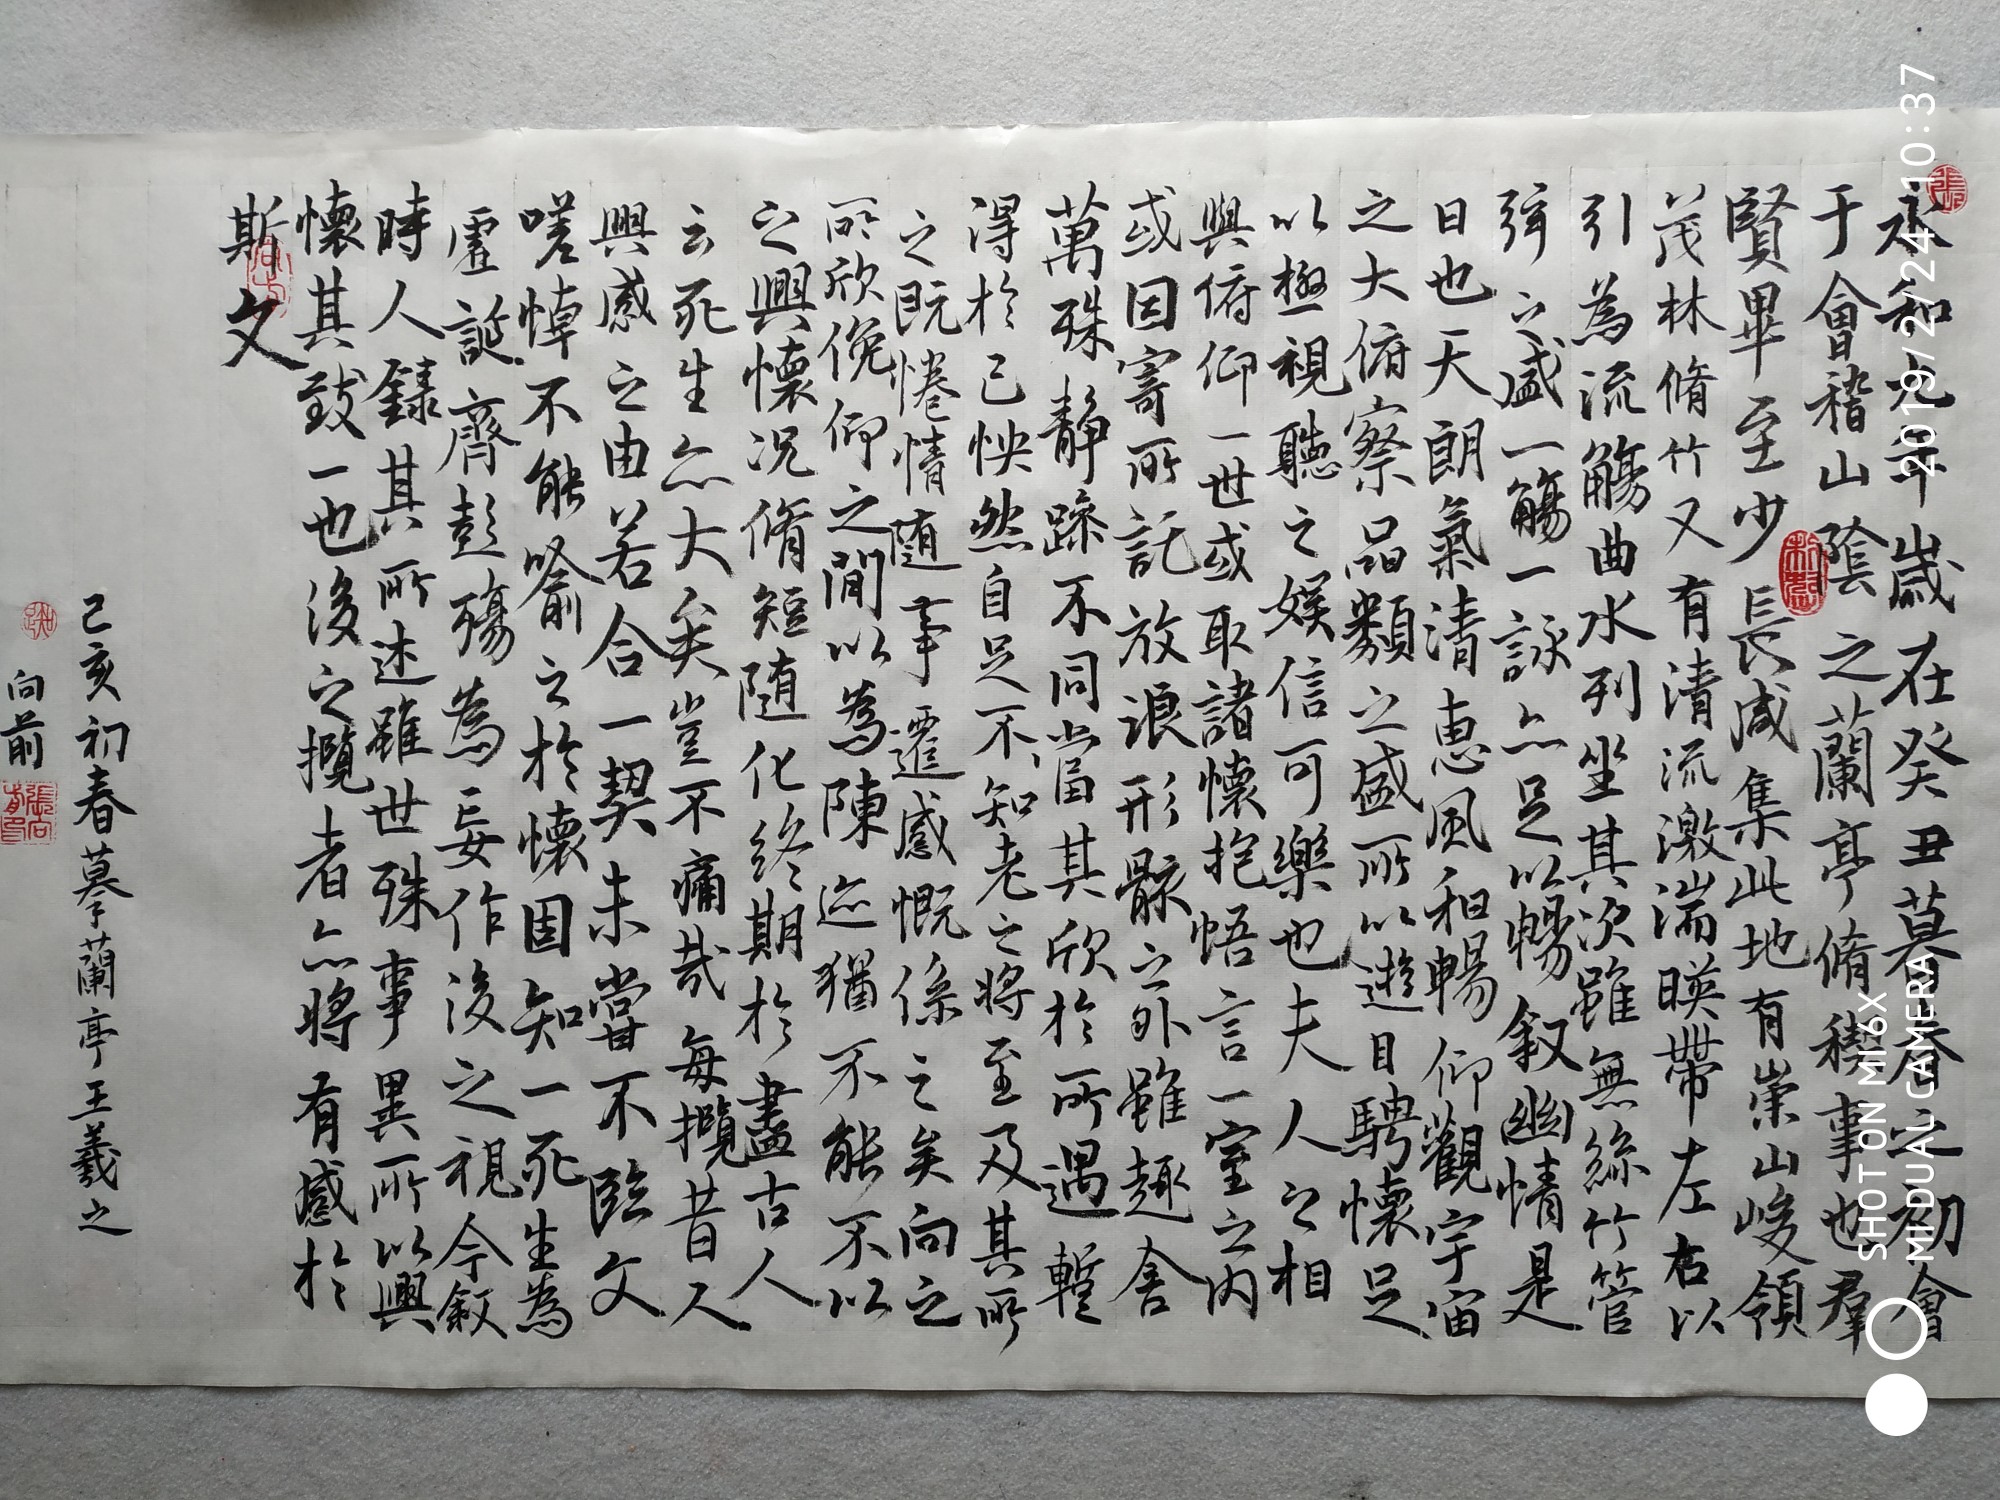 永和九年歲在癸丑暮春之初會
于會稽山陰之蘭亭脩稧事也羣
賢畢至少長咸集此地有崇山峻領
茂林脩竹又有清流激湍暎帶左右以
引為流觴曲水列坐其次雖無絲竹管
弦之盛一觴一詠亦足以暢叙幽情是
日也天朗氣清惠風和暢仰觀宇宙
之大俯察品類之盛所以遊目騁懷足
以極視聽之娛信可樂也夫人之相
與俯仰一世或取諸懷抱悟言一室之内
或因寄所託放浪形骸之外雖趣舍
萬殊静躁不同當其欣於所遇暫
得於己怏然自足不知老之將至及其所
之既惓情随事遷感慨係之矣向之
所欣俛仰之間以為陳迹猶不能不以
之興懷況脩短随化終期於盡古人
云死生亦大矣豈不痛哉每攬昔人
興感之由若合一契未嘗不臨文
嗟悼不能喻之於懷固知一死生為
虛誕齊彭殤為妄作後之視今叙
時人錄其所述雖世殊事異所以興
懷其致一也後之攬者亦將有感於
斯文
己亥初春摹蘭亭王羲之
向前
SHOT ON MI 6X
MI DUAL CAMERA
2019/2/24 10:37